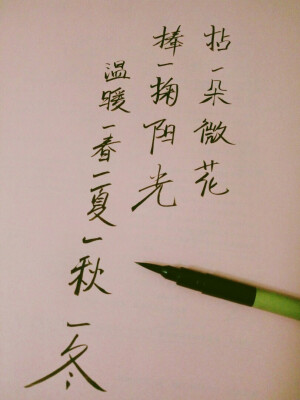 拈一朵微花
捧一掬阳光
温暖一春一夏一秋一冬